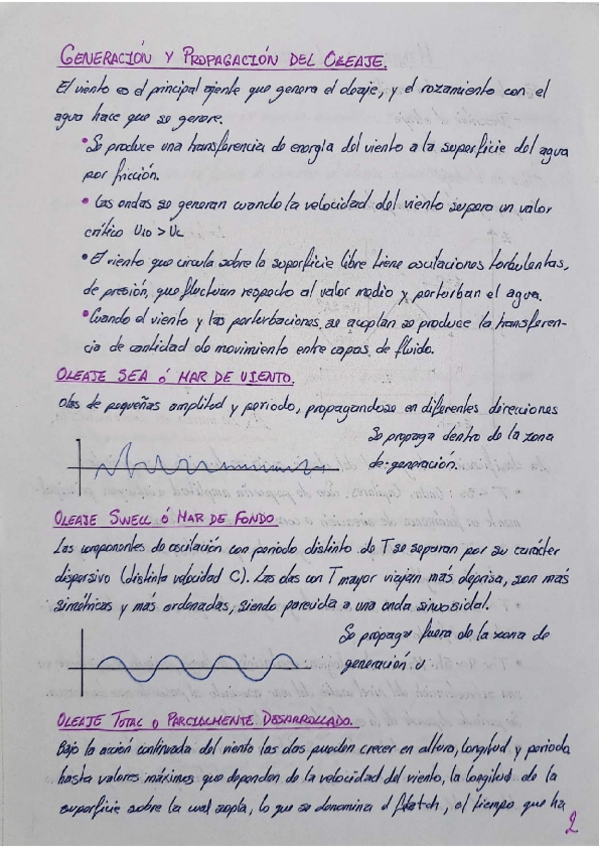 GENERACIÓN Y PROPAGACIÓN DEL OLEAJE.
El viento es el principal agente que genera el oleaje, y el rozamiento con el
agua hace que se genere.
• Se produce una transferencia de energía del viento a la superficie del agua
por fricción.
• Las ondas se generan cuando la velocidad del viento supera un valor
crítico U10 > Uc
• El viento que circula sobre la superficie libre tiene oscilaciones turbulentas,
de presión, que fluctuan respecto al valor medio y perturban el agua.
• Cuando el viento y las perturbaciones se acoplan se produce la transferen-
cia de cantidad de movimiento entre capas de fluido.
OLEAJE SEA ó MAR DE VIENTO.
Olas de pequeñas amplitud y periodo, propagandose en diferentes direcciones
Se propaga dentro de la zona
de generación.
OLEAJE SWELL ó MAR DE FONDO
Las componentes de oscilación con periodo distinto de T se separan por su carácter
dispersivo (distinta velocidad C). Las olas con T mayor viajan más deprisa, son más
simétricas y más ordenadas, siendo parecida a una onda sinusoidal.
Se propaga fuera de la zona de
generación
OLEAJE TOTAL o PARCIALMENTE DESARROLLADO.
Bajo la acción continuada del viento las olas pueden crecer en altura, longitud y periodo
hasta valores máximos que dependen de la velocidad del viento, la longitud de la
superficie sobre la cual sopla, lo que se denomina el fetch, el tiempo que ha
2